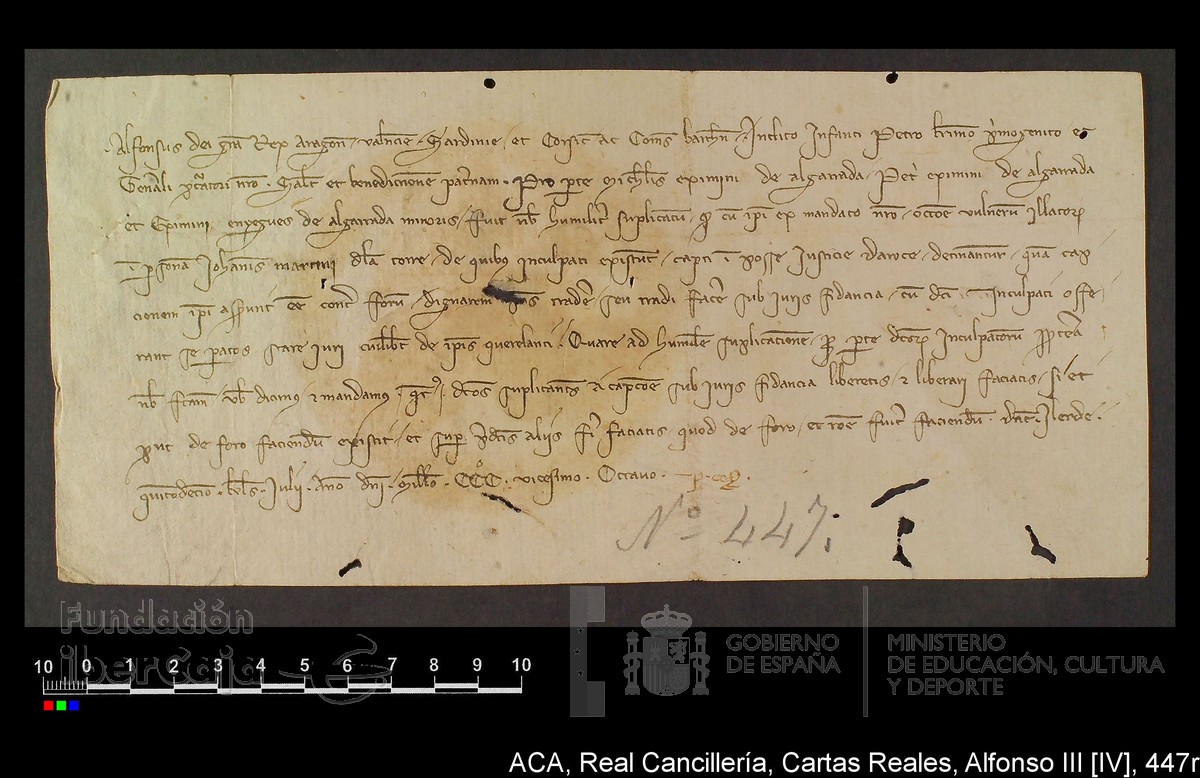 Alfonsus dei gra Rex Aragon Valencie Sardinie et Corsic ac Comes barchn Inclito Infanti Petro krimo primogenito et
Generali pcuratori nro Salt et benediccionem paternam Pro parte Michlis eximini de algarrada Petri eximini de algarrada
et Eximini enyegues de algarrada minoris fuit nob humilit supplicatu q cu ipi ex mandato nro occoe vulneru illator
i psona Johanis martini dla torre de quibus inculpati existunt capti i posse Justicie daroce detineantur qua cap
cionem ipi asserunt ee contra foru dignarem ipos tradere seu tradi facere sub iuris fidancia cu dci inculpati offe
rant se paratos stare iuri cuilibet de ipis querelanti Quare ad humile supplicatione pro parte dictor inculpatoru propterea
nob factam vob dicimus et mandamus qt dcos supplicantes a capcoe sub iuris fidancia liberetis et liberari faciatis si et
prout de foro faciendu existit et sup pdcis aliis fi faciatis quod de foro et roe fuit faciendu dat Ilerde
quintodecio kls Julii Ano dni Millo CCC vicesimo Octavo
Nº 447
Fundación
iberCaja
10 0 1 2 3 4 5 6 7 8 9 10
GOBIERNO
DE ESPAÑA
MINISTERIO
DE EDUCACIÓN, CULTURA
Y DEPORTE
ACA, Real Cancillería, Cartas Reales, Alfonso III [IV], 447r